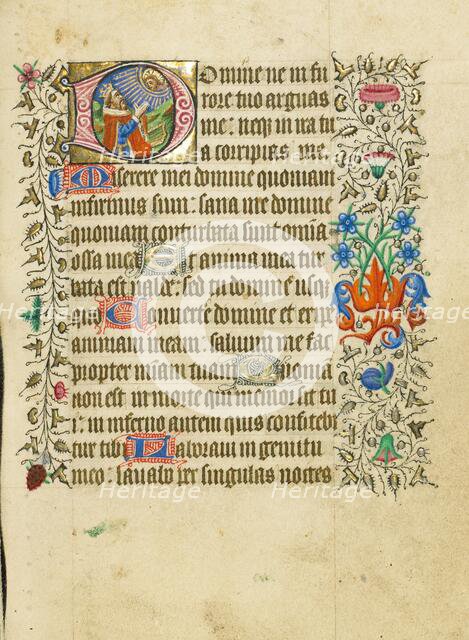 Domine ne in fu
rore tuo arguas
me: neqz in ira tu
a corripias me
Miserere mei domine quoniam
infirmus sum: sana me domine
quoniam conturbata sunt omnia
ossa mea Et anima mea tur
bata est valde: sed tu domine usqz
quo Convertere domine et eripe
animam meam: salvum me fac
propter miam tuam Quoniam
non est in morte qui memor sit tu
i: in inferno autem quis confitebi
tur tibi Laboravi in gemitu
meo: lavabo per singulas noctes
Heritage
Heritage
Heritage
Heritage
Heritage
Heritage
Heritage
Heritage